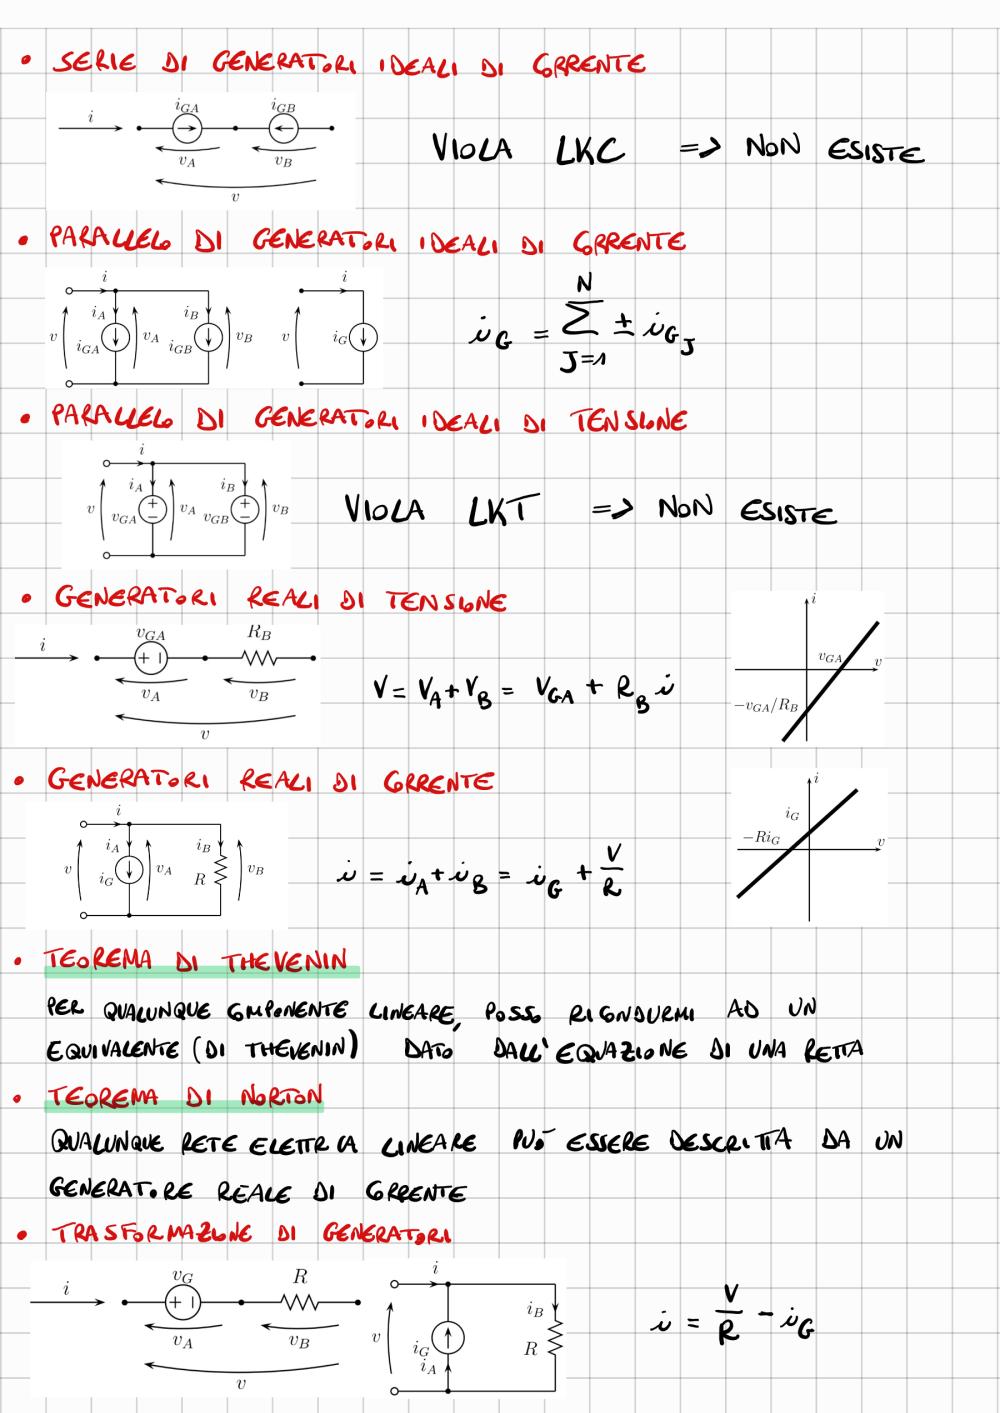 • SERIE DI GENERATORI IDEALI DI CORRENTE
i i_GA i_GB
v_A v_B
v
VIOLA LKC => NON ESISTE
• PARALLELO DI GENERATORI IDEALI DI CORRENTE
i i
i_A i_B
v i_GA v_A i_GB v_B v i_G
i_G = \sum_{J=1}^{N} ± i_{G_J}
• PARALLELO DI GENERATORI IDEALI DI TENSIONE
i
i_A i_B
v v_GA v_A v_GB v_B
VIOLA LKT => NON ESISTE
• GENERATORI REALI DI TENSIONE
i v_GA R_B
v_A v_B
v
V = V_A + V_B = V_GA + R_B i
i
v_GA v
-v_GA/R_B
• GENERATORI REALI DI CORRENTE
i
i_A i_B
v i_G v_A R v_B
i = i_A + i_B = i_G + V/R
i
i_G
-Ri_G v
• TEOREMA DI THEVENIN
PER QUALUNQUE COMPONENTE LINEARE, POSSO RICONDURMI AD UN
EQUIVALENTE (DI THEVENIN) DATO DALL'EQUAZIONE DI UNA RETTA
• TEOREMA DI NORTON
QUALUNQUE RETE ELETTRICA LINEARE PUÒ ESSERE DESCRITTA DA UN
GENERATORE REALE DI CORRENTE
• TRASFORMAZIONE DI GENERATORI
i v_G R
v_A v_B
v
i
i_B
v i_G R
i_A
i = V/R - i_G